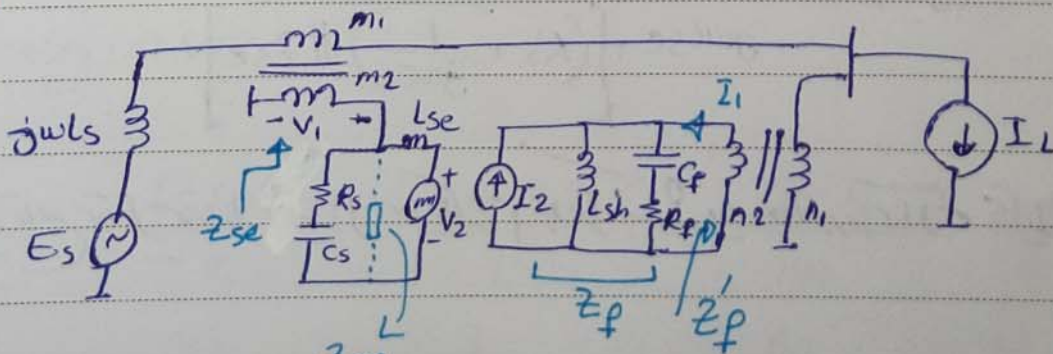 m1
m2
jωLs
- V1 +
Lse
I1
IL
Zse
Rs
+
V2
-
I2
Lsh
Cf
Rf
n2
n1
Es
Cs
Zf
Z'f